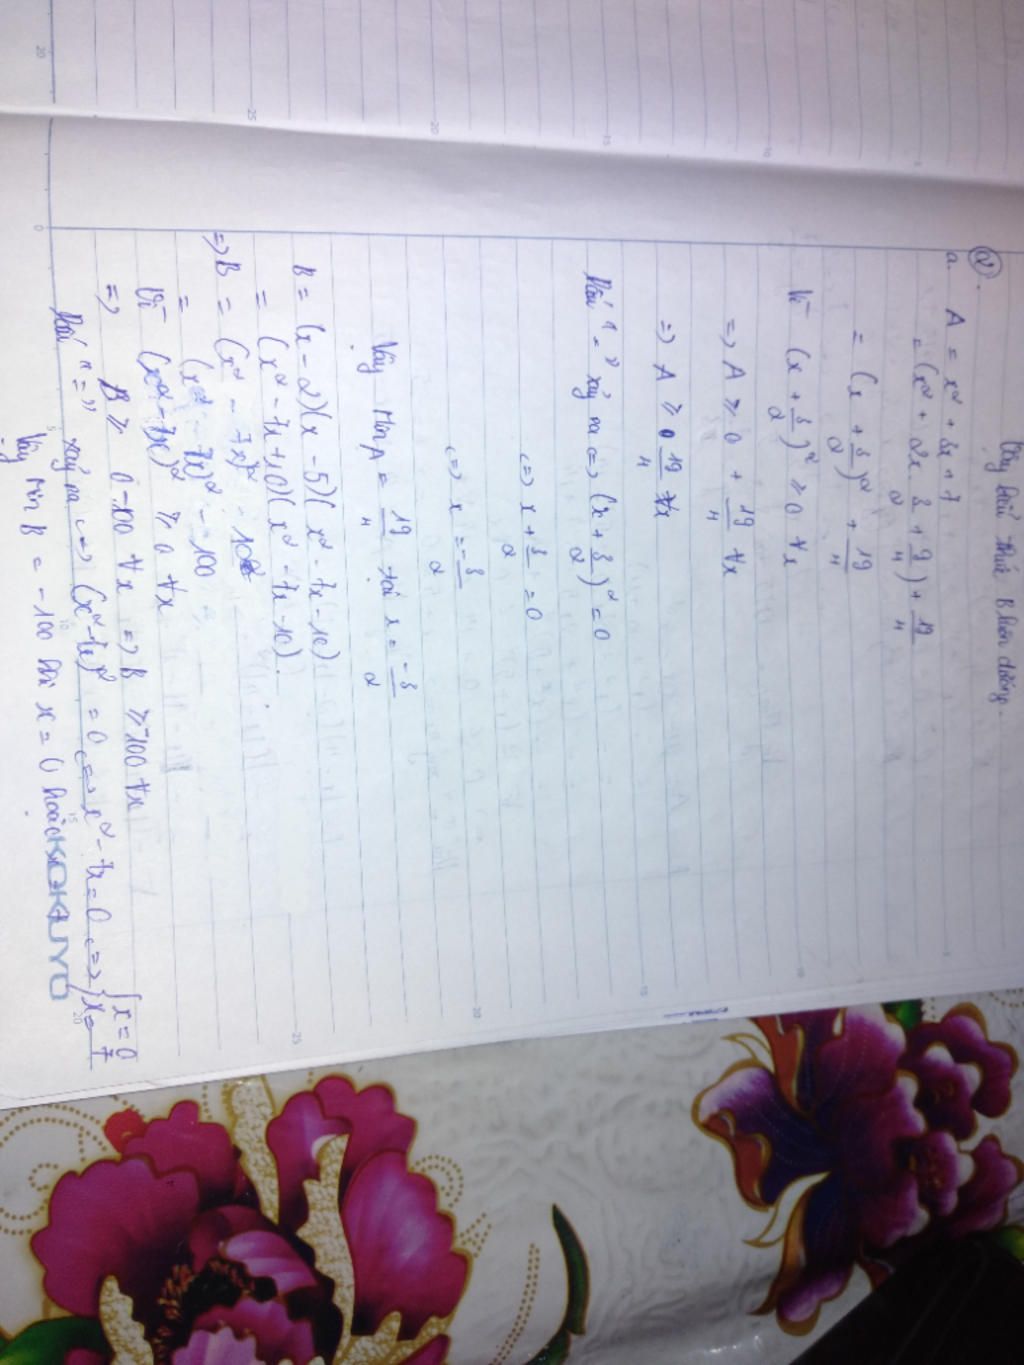 Vậy biểu thức B luôn dương.
②.
a. A = x² + 3x + 7
= (x² + 2x 3/2 + 9/4) + 19/4
= (x + 3/2)² + 19/4
Vì (x + 3/2)² ≥ 0 ∀x
=> A ≥ 0 + 19/4 ∀x
=> A ≥ 19/4 ∀x
Dấu "=" xảy ra <=> (x + 3/2)² = 0
<=> x + 3/2 = 0
<=> x = -3/2
Vậy Min A = 19/4 tại x = -3/2
B = (x - 2)(x - 5)(x² - 7x - 10)
= (x² - 7x + 10)(x² - 7x - 10).
=> B = (x² - 7x)² - 10²
= (x² - 7x)² - 100
Vì (x² - 7x)² ≥ 0 ∀x
=> B ≥ 0 - 100 ∀x => B ≥ -100 ∀x
Dấu "=" xảy ra <=> (x² - 7x)² = 0 <=> x² - 7x = 0 <=> [x = 0
x = 7
Vậy Min B = -100 khi x = 0 hoặc x = 7
KOKUYO